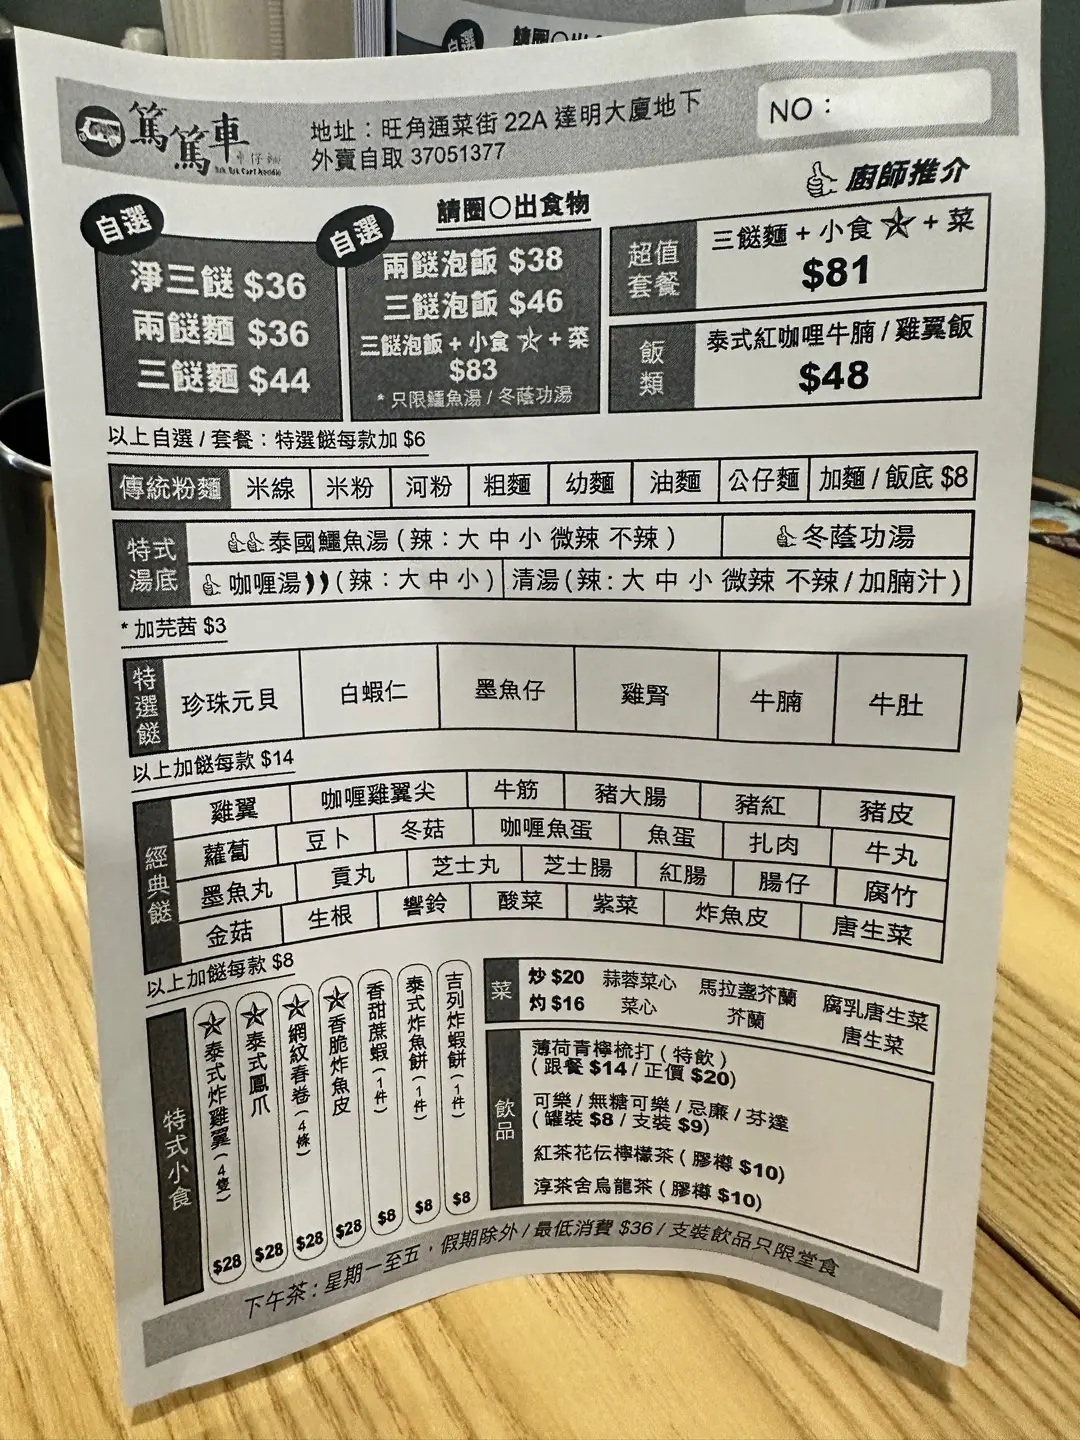 自選
請圈○出
篤篤車
車仔麵
Tuk Tuk Cart Noodle
地址：旺角通菜街 22A 達明大廈地下
外賣自取 37051377
NO：
自選
淨三餸 $36
兩餸麵 $36
三餸麵 $44
請圈○出食物
自選
兩餸泡飯 $38
三餸泡飯 $46
三餸泡飯 + 小食 ★ + 菜
$83
* 只限鱷魚湯 / 冬蔭功湯
廚師推介
超值套餐
三餸麵 + 小食 ★ + 菜
$81
飯類
泰式紅咖哩牛腩 / 雞翼飯
$48
以上自選 / 套餐：特選餸每款加 $6
傳統粉麵 米線 米粉 河粉 粗麵 幼麵 油麵 公仔麵 加麵 / 飯底 $8
特式湯底
泰國鱷魚湯 ( 辣：大 中 小 微辣 不辣 ) 冬蔭功湯
咖喱湯 ( 辣：大 中 小 ) 清湯 ( 辣: 大 中 小 微辣 不辣 / 加腩汁 )
* 加芫茜 $3
特選餸 珍珠元貝 白蝦仁 墨魚仔 雞腎 牛腩 牛肚
以上加餸每款 $14
經典餸
雞翼 咖喱雞翼尖 牛筋 豬大腸 豬紅 豬皮
蘿蔔 豆卜 冬菇 咖喱魚蛋 魚蛋 扎肉 牛丸
墨魚丸 貢丸 芝士丸 芝士腸 紅腸 腸仔 腐竹
金菇 生根 響鈴 酸菜 紫菜 炸魚皮 唐生菜
以上加餸每款 $8
特式小食
★ 泰式炸雞翼 ( 4 隻 ) $28
★ 泰式鳳爪 $28
★ 網紋春卷 ( 4 條 ) $28
★ 香脆炸魚皮 $28
香甜蔗蝦 ( 1 件 ) $8
泰式炸魚餅 ( 1 件 ) $8
吉列炸蝦餅 ( 1 件 ) $8
菜
炒 $20 蒜蓉菜心 馬拉盞芥蘭 腐乳唐生菜
灼 $16 菜心 芥蘭 唐生菜
飲品
薄荷青檸梳打 ( 特飲 )
( 跟餐 $14 / 正價 $20)
可樂 / 無糖可樂 / 忌廉 / 芬達
( 罐裝 $8 / 支裝 $9)
紅茶花伝檸檬茶 ( 膠樽 $10)
淳茶舍烏龍茶 ( 膠樽 $10)
下午茶 : 星期一至五，假期除外 / 最低消費 $36 / 支裝飲品只限堂食